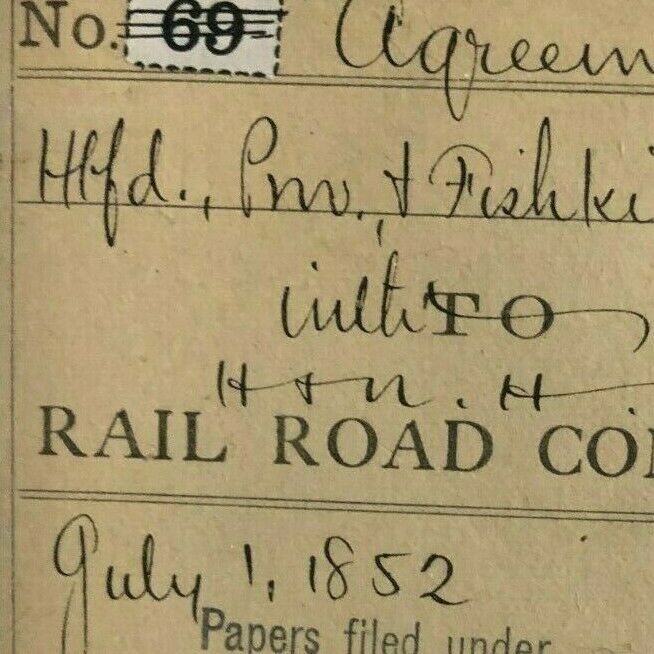 No. 69 Agreem
Htfd., Prov., & Fishki
with TO
H & N. H
RAIL ROAD COM
July 1, 1852
Papers filed under